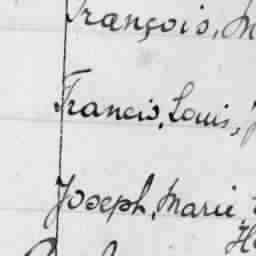 François, M
Francis, Louis, J
Joseph, Marie